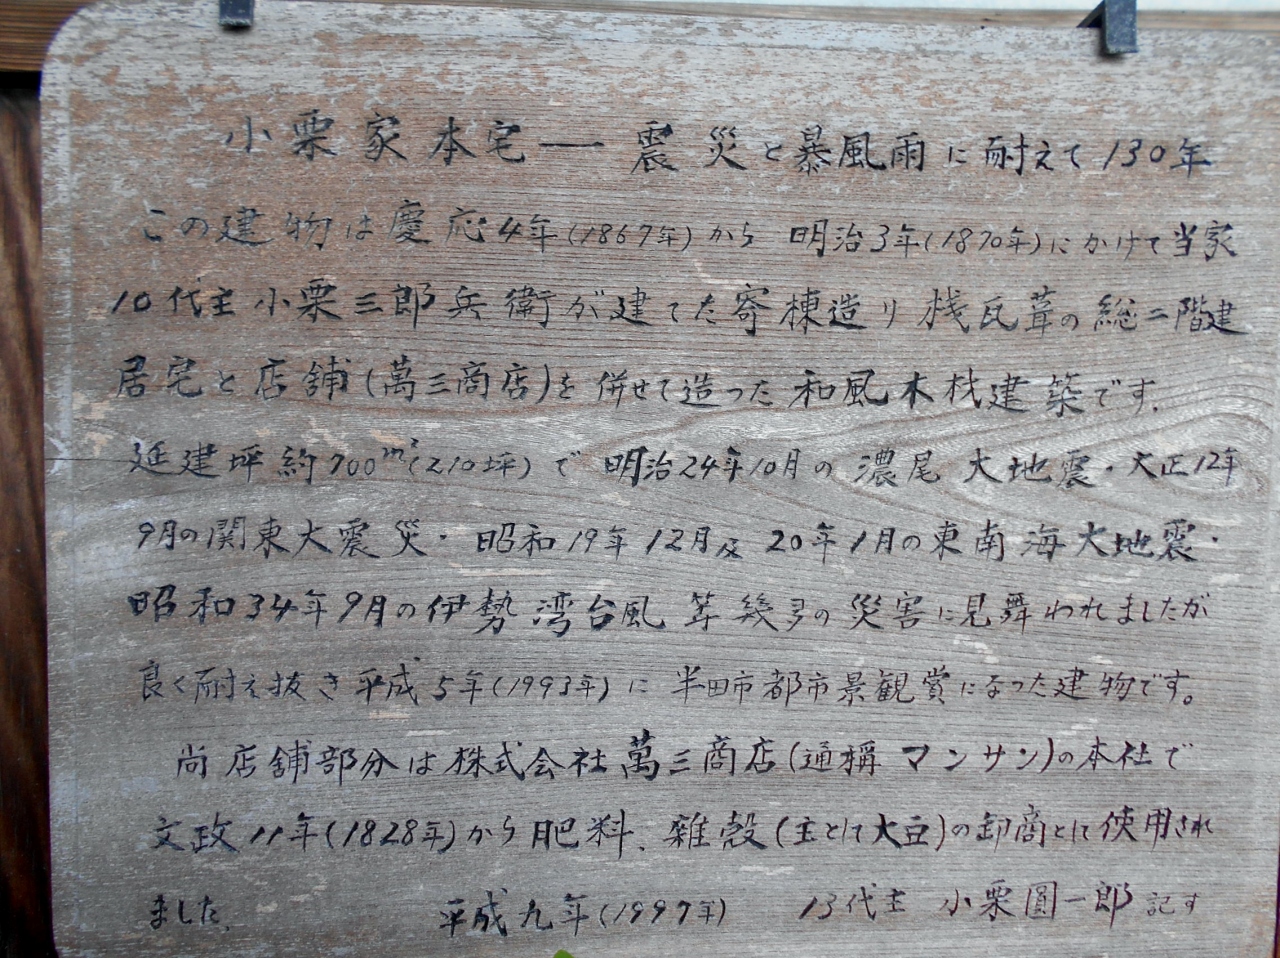 小栗家本宅―震災と暴風雨に耐えて130年
この建物は慶応4年(1867年)から 明治3年(1870年)にかけて当家
10代主小栗三郎兵衛が建てた寄棟造り桟瓦葺の総二階建
居宅と店舗(萬三商店)を併せて造った和風木材建築です.
延建坪約700m²(210坪)で 明治24年10月の濃尾大地震・大正12年
9月の関東大震災・昭和19年12月及20年1月の東南海大地震・
昭和34年9月の伊勢湾台風等幾多の災害に見舞われましたが
良く耐え抜き平成5年(1993年)に 半田市都市景観賞になった建物です。
尚店舗部分は株式会社萬三商店(通稱マンサン)の本社で
文政11年(1828年)から肥料、雑穀(主とに大豆)の卸商とに使用され
ました. 平成九年(1997年) 13代主 小栗圓一郎 記す